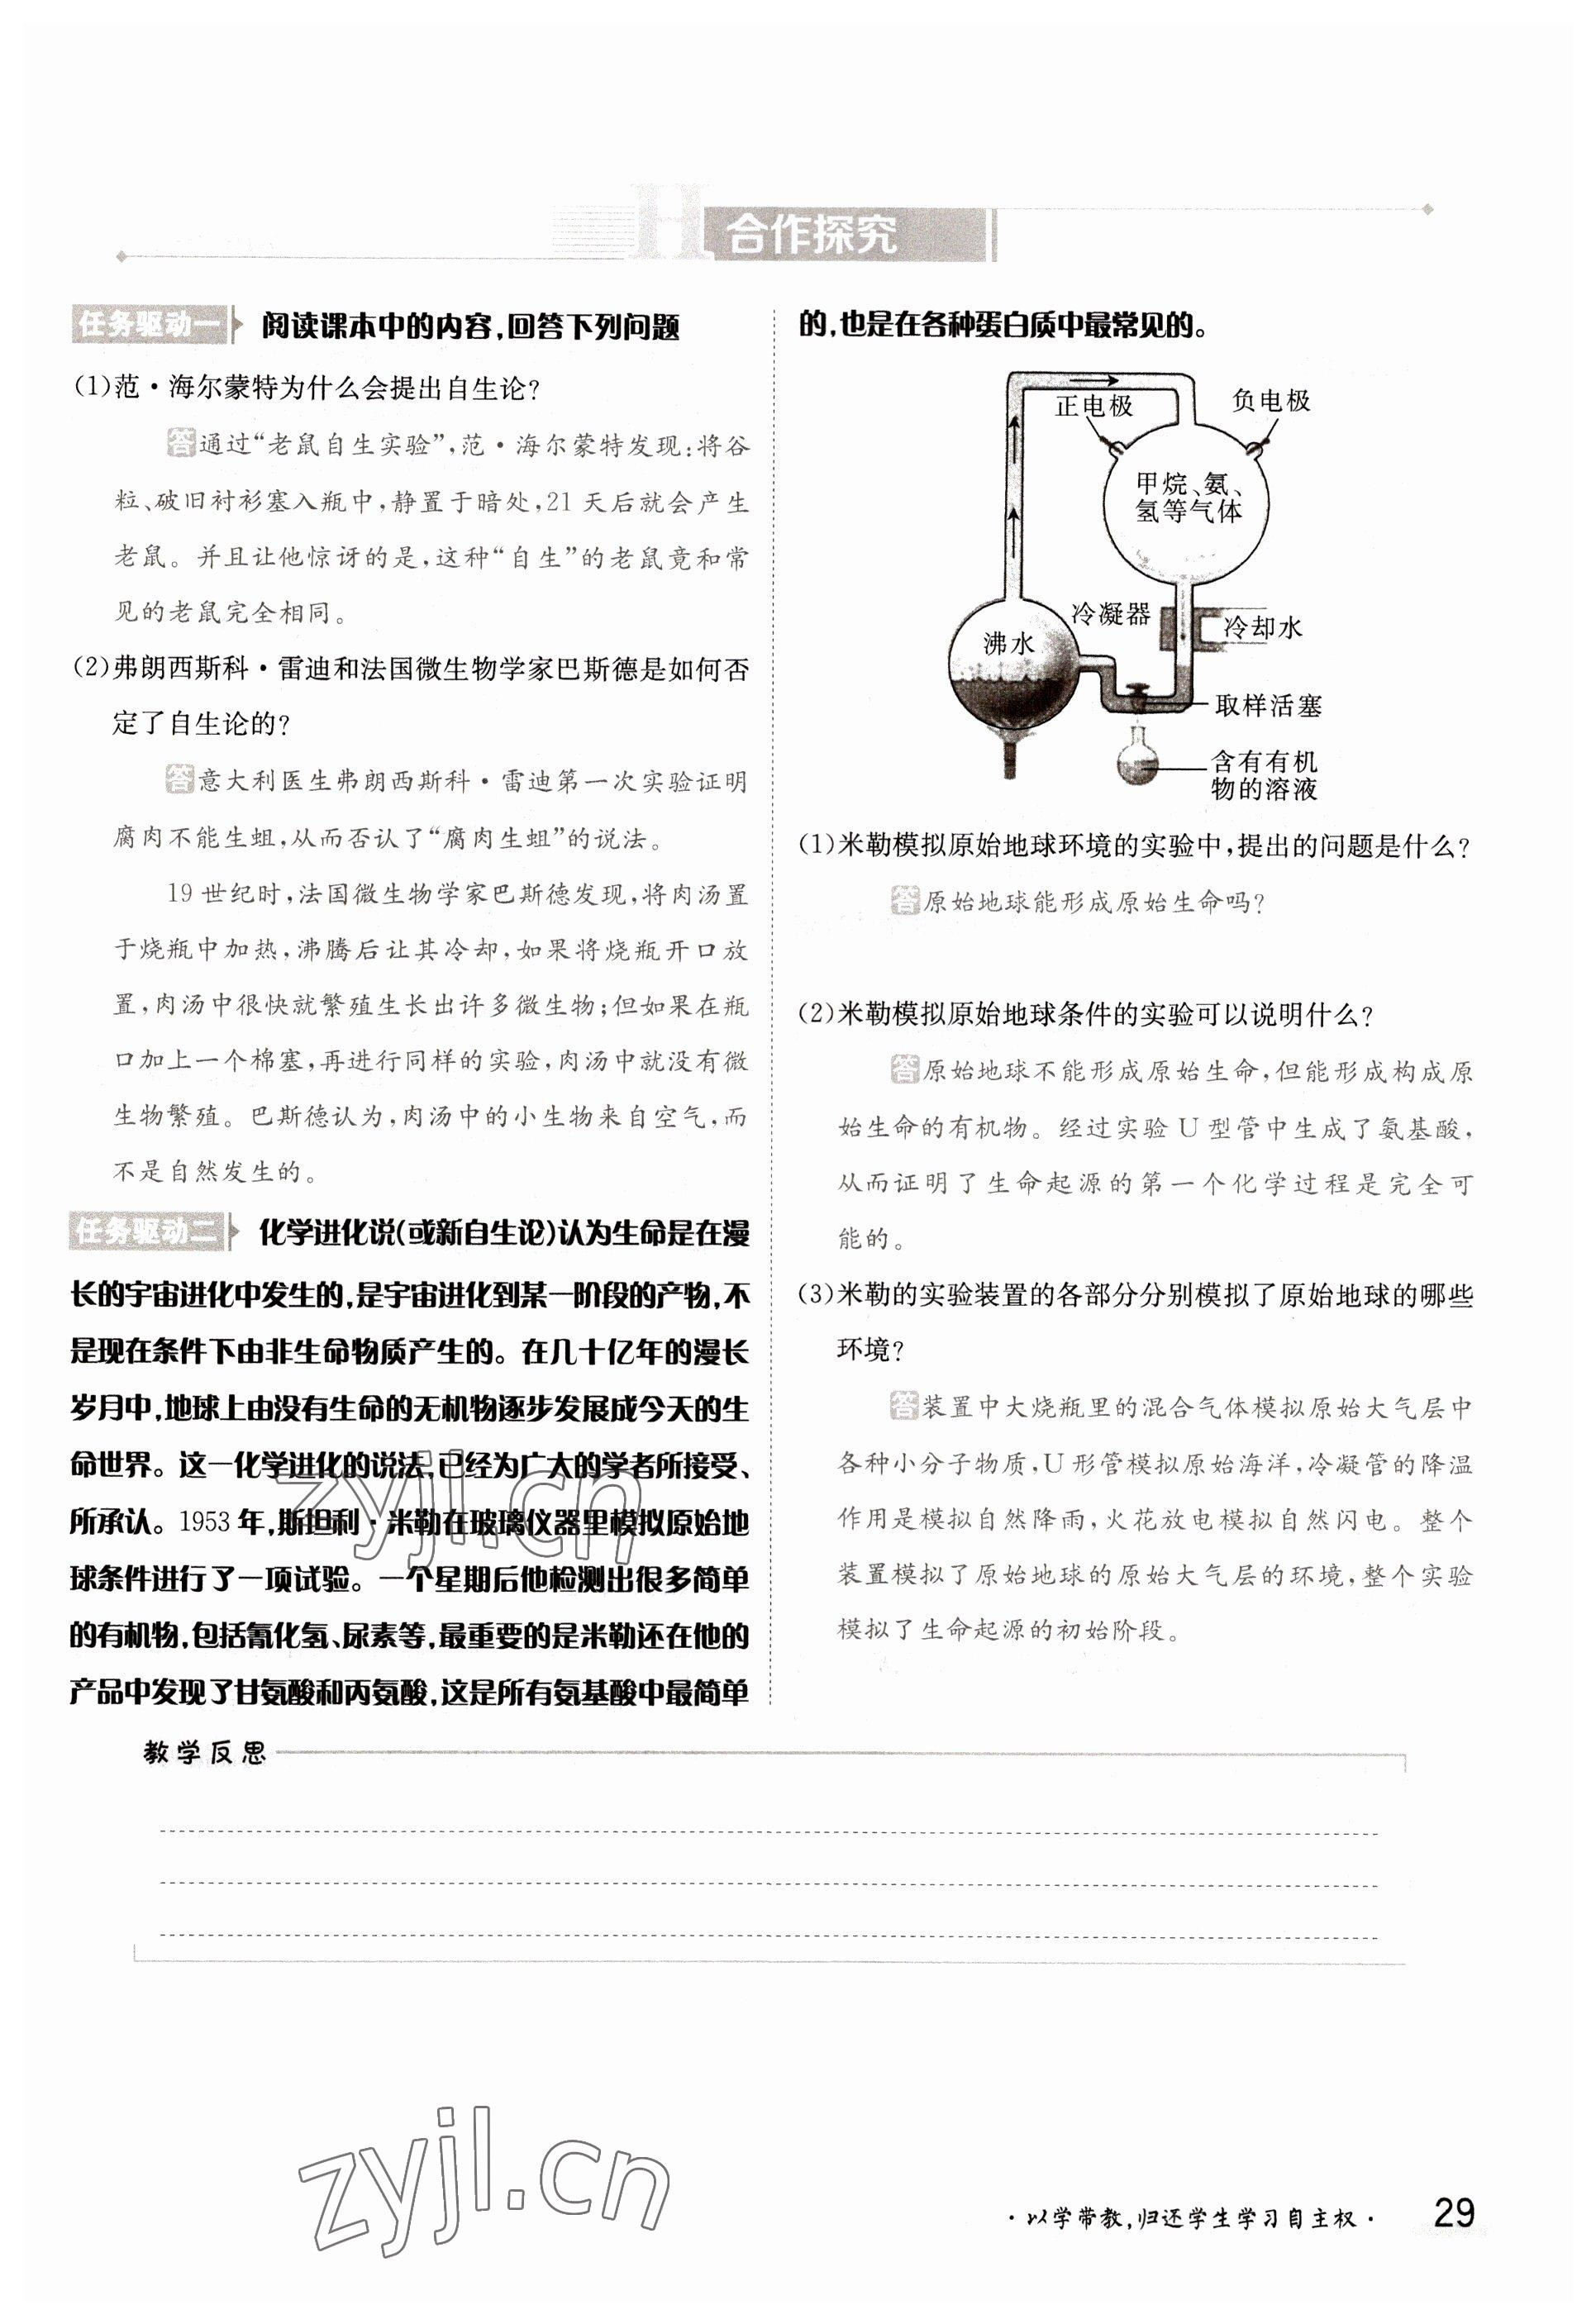 合作探究
任务驱动一 阅读课本中的内容,回答下列问题
(1)范·海尔蒙特为什么会提出自生论?
答通过“老鼠自生实验”,范·海尔蒙特发现:将谷
粒、破旧衬衫塞入瓶中,静置于暗处,21天后就会产生
老鼠。并且让他惊讶的是,这种“自生”的老鼠竟和常
见的老鼠完全相同。
(2)弗朗西斯科·雷迪和法国微生物学家巴斯德是如何否
定了自生论的?
答意大利医生弗朗西斯科·雷迪第一次实验证明
腐肉不能生蛆,从而否认了“腐肉生蛆”的说法。
19世纪时,法国微生物学家巴斯德发现,将肉汤置
于烧瓶中加热,沸腾后让其冷却,如果将烧瓶开口放
置,肉汤中很快就繁殖生长出许多微生物;但如果在瓶
口加上一个棉塞,再进行同样的实验,肉汤中就没有微
生物繁殖。巴斯德认为,肉汤中的小生物来自空气,而
不是自然发生的。
任务驱动二 化学进化说(或新自生论)认为生命是在漫
长的宇宙进化中发生的,是宇宙进化到某一阶段的产物,不
是现在条件下由非生命物质产生的。在几十亿年的漫长
岁月中,地球上由没有生命的无机物逐步发展成今天的生
命世界。这一化学进化的说法,已经为广大的学者所接受、
所承认。1953年,斯坦利·米勒在玻璃仪器里模拟原始地
球条件进行了一项试验。一个星期后他检测出很多简单
的有机物,包括氰化氢、尿素等,最重要的是米勒还在他的
产品中发现了甘氨酸和丙氨酸,这是所有氨基酸中最简单
的,也是在各种蛋白质中最常见的。
正电极
负电极
甲烷、氨、
氢等气体
冷凝器
冷却水
沸水
取样活塞
含有有机
物的溶液
(1)米勒模拟原始地球环境的实验中,提出的问题是什么?
答原始地球能形成原始生命吗?
(2)米勒模拟原始地球条件的实验可以说明什么?
答原始地球不能形成原始生命,但能形成构成原
始生命的有机物。经过实验U型管中生成了氨基酸,
从而证明了生命起源的第一个化学过程是完全可
能的。
(3)米勒的实验装置的各部分分别模拟了原始地球的哪些
环境?
答装置中大烧瓶里的混合气体模拟原始大气层中
各种小分子物质,U形管模拟原始海洋,冷凝管的降温
作用是模拟自然降雨,火花放电模拟自然闪电。整个
装置模拟了原始地球的原始大气层的环境,整个实验
模拟了生命起源的初始阶段。
zyjl.cn
教学反思
zyjl.cn
·以学带教,归还学生学习自主权·
29